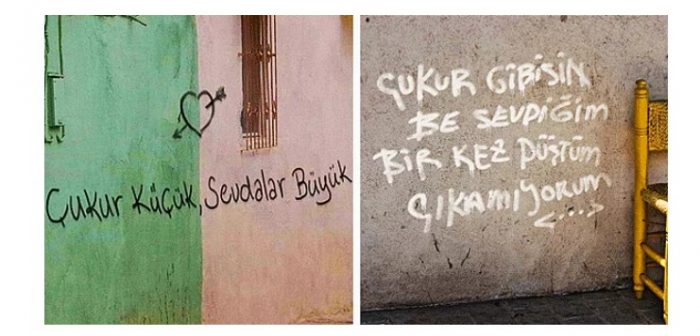 Çukur Küçük, Sevdalar Büyük
ÇUKUR GİBİSİN
BE SEVDİĞİM
BİR KEZ DÜŞTÜM
ÇIKAMIYORUM
<...>